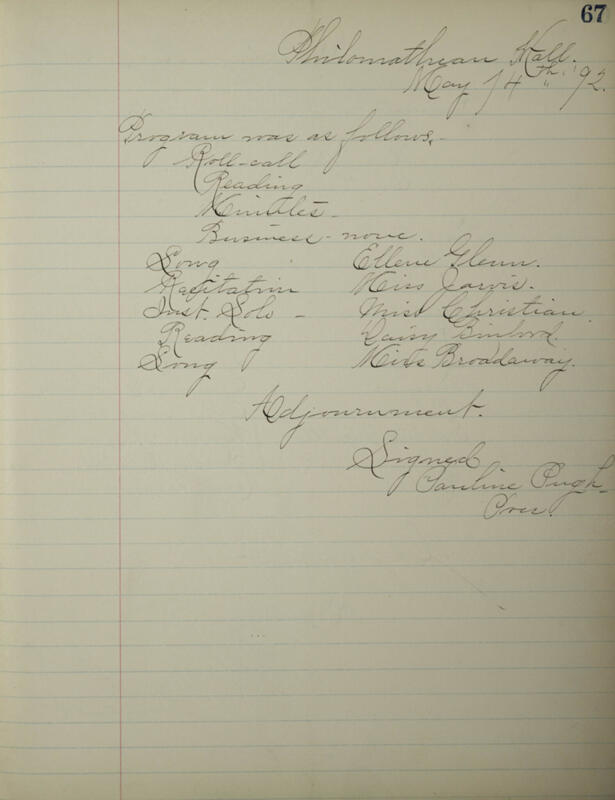 67
Philomathean Hall.
May 14th '92.
Program was as follows.
Roll-call
Reading
Minutes -
Business - none.
Song Ellene Glenn.
Recitation Miss Jarvis.
Inst. Solo - Miss Christian
Reading Daisy Binford.
Song Miss Broadaway.
Adjournment.
Signed
Pauline Pugh -
Pres.